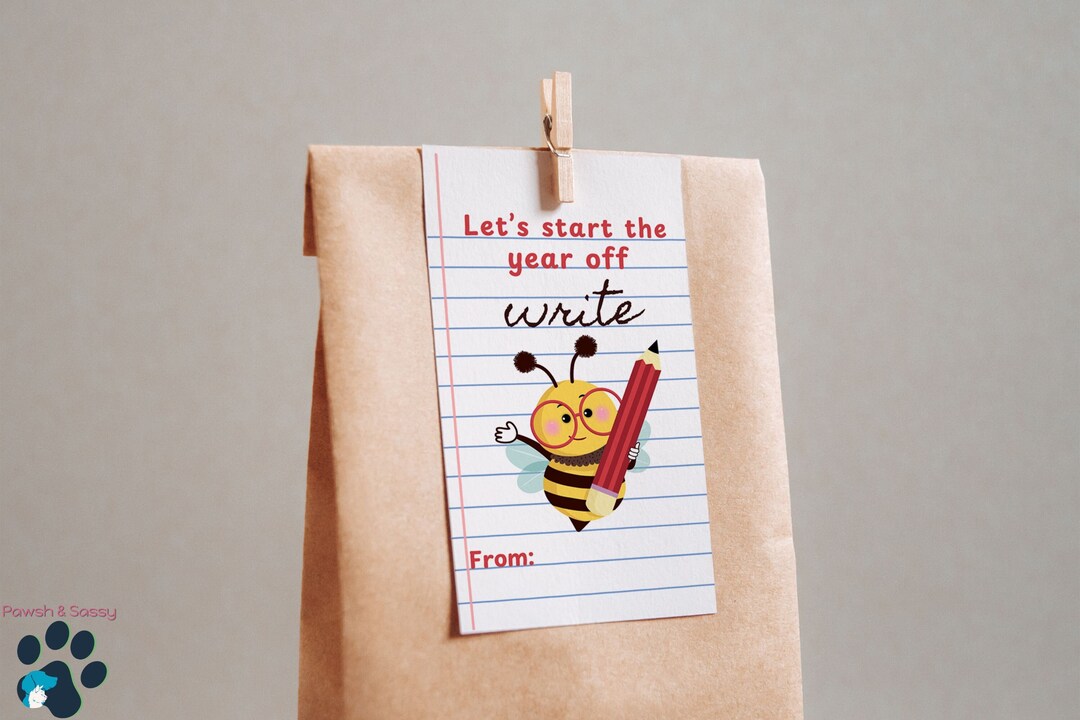 Let's start the
year off
write
From:
Pawsh & Sassy